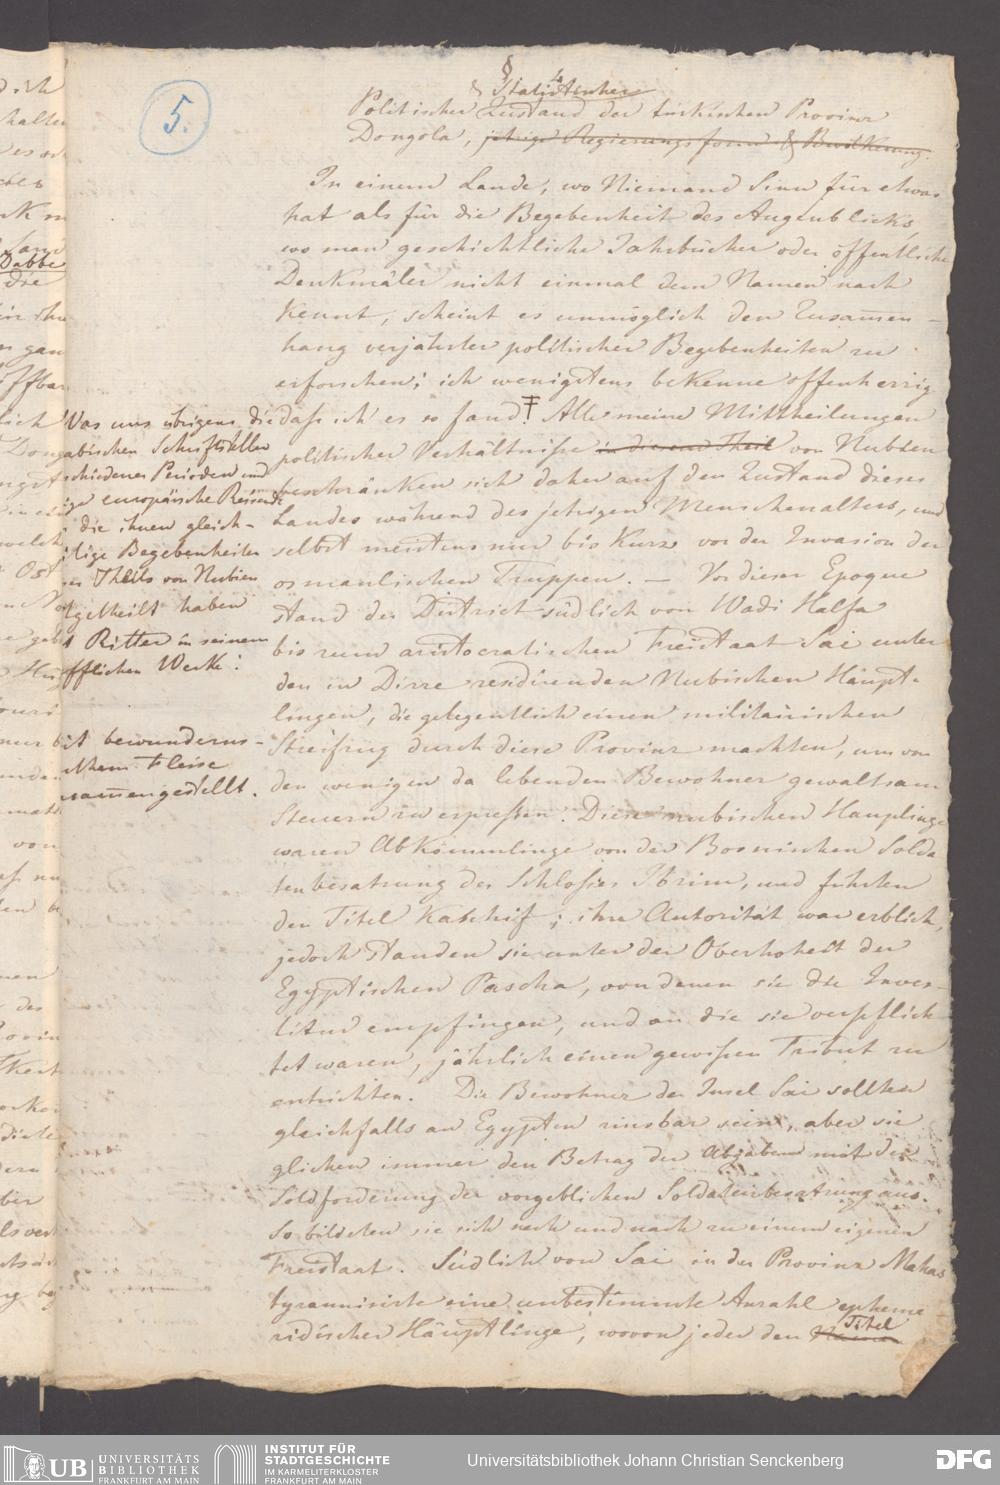 5.
§ 4
& Statistischer
Politischer Zustand der türkischen Provinz
Dongola, jetzige Regierungsform & Bevölkerung.
In einem Lande, wo Niemand Sinn für etwas
hat als für die Begebenheit des Augenblicks,
wo man geschichtliche Jahrbücher oder öffentliche
Denkmäler nicht einmal dem Namen nach
kennt, scheint es unmöglich den Zusammen-
hang verjährter politischer Begebenheiten zu
erforschen; ich wenigstens bekenne offenherzig
daß ich es so fand! ‡ Alle meine Mittheilungen
politischer Verhältniße in diesem Theil von Nubien
beschränken sich daher auf den Zustand dieses
Landes während des jetzigen Menschenalters, und
selbst meistens nur bis kurz vor der Invasion der
osmanlischen Truppen. — Vor dieser Epoque
stand der District südlich von Wadi Halfa
bis zum aristocratischen Freistaat Sai unter
den in Dirre residirenden Nubischen Häupt-
lingen, die gelegentlich einen militärischen
Streifzug durch diese Provinz machten, um von
den wenigen da lebenden Bewohner gewaltsam
Steuern zu erpreßen. Diese nubischen Hauplinge
waren Abkömmlinge von der Bosnischen Solda
tenbesatzung des Schloßes Ibrim, und führten
den Titel Kaschif; ihre Autorität war erblich,
jedoch standen sie unter der Oberhoheit der
Egyptischen Pascha, von denen sie die Inves-
titur empfingen, und an die sie verpflich
tet waren, jährlich einen gewißen Tribut zu
entrichten. Die Bewohner der Insel Sai sollten
gleichfalls an Egypten zinsbar sein, aber sie
glichen immer den Betrag der Abgaben mit der
Soldforderung der vorgeblichen Soldatenbesatzung aus.
So bildeten sie sich nach und nach zu einem eigenen
Freistaat. Südlich von Sai in der Provinz Mahas
tyrannisirte eine unbestimmte Anzahl epheme
ridischer Häuptlinge, wovon jeder den Namen
Titel
Was uns übrigens die
abischen Schriftsteller
schiedener Perioden und
ige europäische Reisende
die ihnen gleich-
itige Begebenheiten
es Theils von Nubien
tgetheilt haben
t Ritter in seinem
fflichen Werke:
it bewunderns-
them Fleise
sammengestellt.
Dabbe
die
UB UNIVERSITÄTS
BIBLIOTHEK
FRANKFURT AM MAIN
INSTITUT FÜR
STADTGESCHICHTE
IM KARMELITERKLOSTER
FRANKFURT AM MAIN
Universitätsbibliothek Johann Christian Senckenberg
DFG